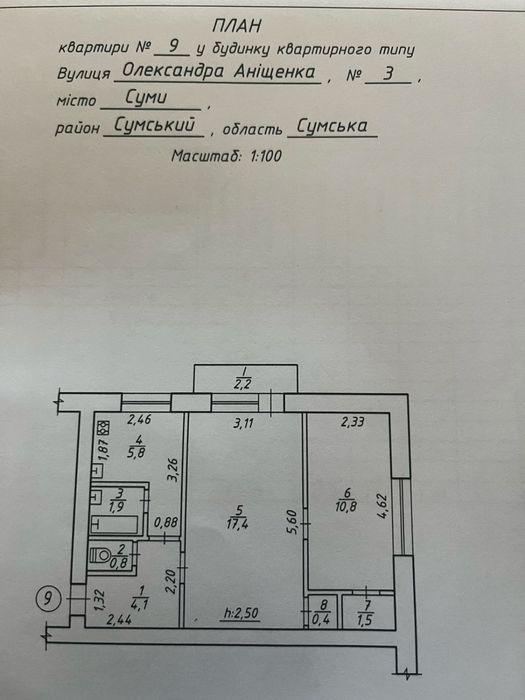 ПЛАН
квартири № 9 у будинку квартирного типу
Вулиця Олександра Аніщенка, № 3,
місто Суми,
район Сумський, область Сумська
Масштаб: 1:100
I
2,2
2,46
3,11
2,33
1,87
4
5,8
3,26
3
1,9
0,88
5
17,4
5,60
6
10,8
4,62
2
0,8
9
1,32
1
4,1
2,20
2,44
h:2,50
8
0,4
7
1,5